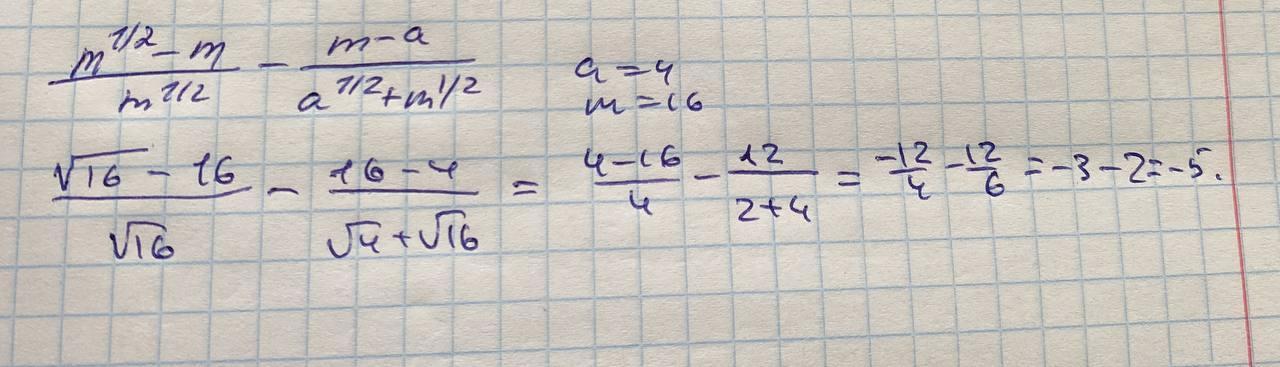 (m^{1/2} - m)/(m^{1/2}) - (m - a)/(a^{1/2} + m^{1/2})   a = 4
m = 16
(√16 - 16)/(√16) - (16 - 4)/(√4 + √16) = (4 - 16)/4 - 12/(2 + 4) = (-12)/4 - 12/6 = -3 - 2 = -5.